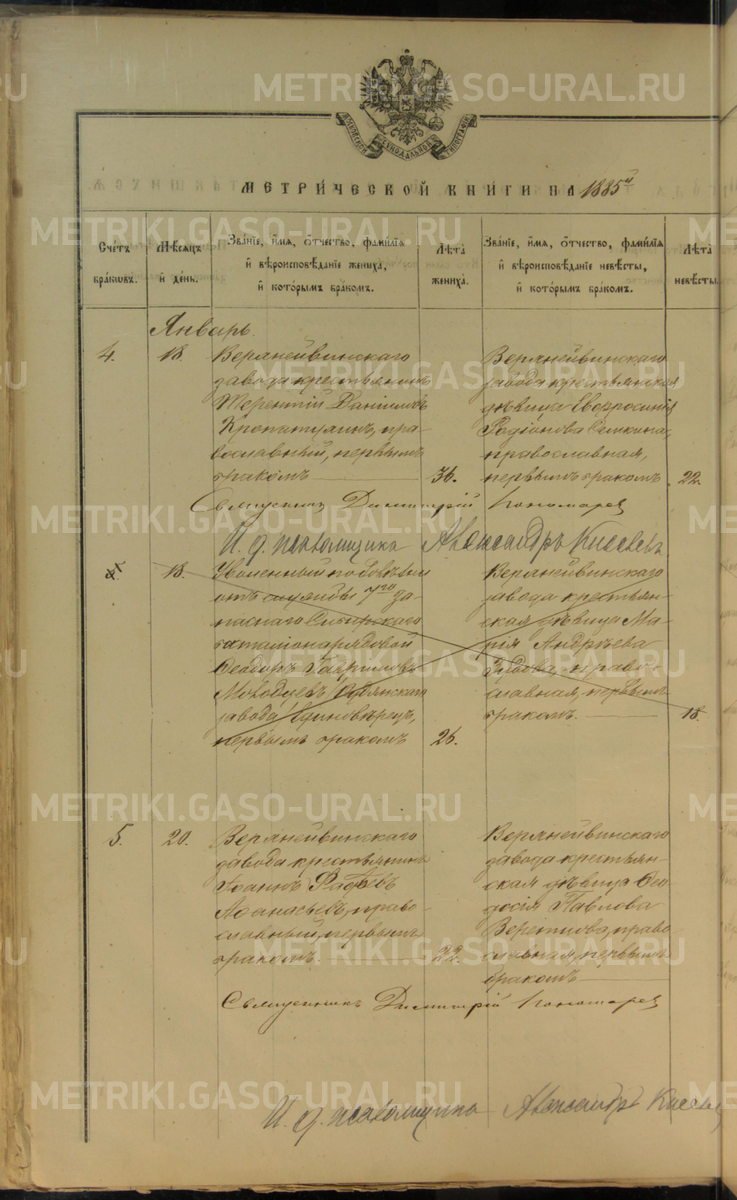 МОСКОВСКОЙ СУНОДАЛЬНОЙ ТИПОГРАФІИ
МЕТРИ́ЧЕСКОЙ КНИ́ГИ НА 1885й
Сче́тъ бра́ковъ.
Мѣ́сяцъ и҆ де́нь.
Зва́нїе, и҆́мя, ѻ҆́тчество, фами́лїя и҆ вѣроисповѣ́данїе жениха̀, и҆ кото́рымъ бра́комъ.
Лѣ́та жениха̀.
Зва́нїе, и҆́мя, ѻ҆́тчество, фами́лїя и҆ вѣроисповѣ́данїе невѣ́сты, и҆ кото́рымъ бра́комъ.
Лѣ́та невѣ́сты.
Январь.
4.
18
Верхнейвинскаго
завода крестьянинъ
Терентій Даніиловъ
пра-
вославный, первымъ
бракомъ
36.
Верхнейвинскаго
завода крестьянская
дѣвица Евфросинія
Родіонова Семкина,
православная,
первымъ бракомъ
22.
Священникъ Димитрій Пономаревъ
И. д. псаломщика Александръ
4
18.
Уволенный
отъ службы 7го За-
паснаго Сибирскаго
баталіона рядовой
Ѳеодоръ Гавриловъ
завода, единовѣрецъ,
первымъ бракомъ
26.
Верхнейвинскаго
завода крестьян-
ская дѣвица Ма-
рія Андреева
Зубова, право-
славная, первымъ
бракомъ.
18.
5.
20.
Верхнейвинскаго
завода крестьянинъ
Іоаннъ
Аѳанасьевъ, право-
славный, первымъ
бракомъ.
22.
Верхнейвинскаго
завода крестьян-
ская дѣвица Ѳео-
досія Павлова
право-
славная, первымъ
бракомъ
Священникъ Димитрій Пономаревъ
И. д. псаломщика Александръ
METRIKI.GASO-URAL.RU